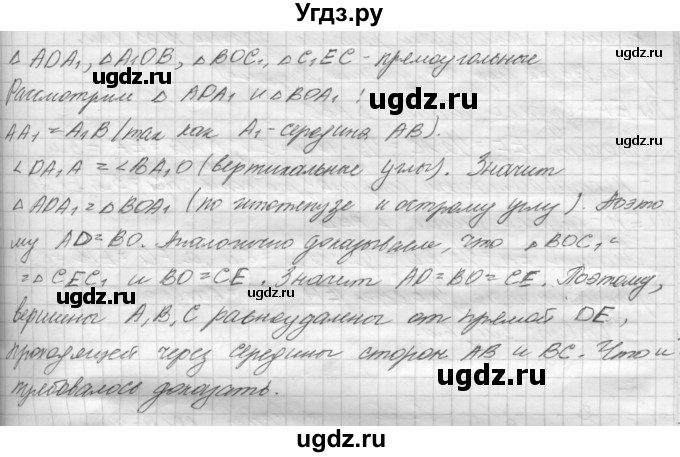 Угдз.ру
△ ADA₁, △A₁OB, △BOC₁, △C₁EC - прямоугольные
Рассмотрим △ ADA₁ и △BOA₁ :
AA₁ = A₁B (так как A₁ - середина AB).
∠DA₁A = ∠BA₁O (вертикальные углы). Значит
△ADA₁ = △BOA₁ (по гипотенузе и острому углу). Поэто
му AD=BO. Аналогично доказываем, что △BOC₁ =
= △CEC₁ и BO = CE. Значит AD=BO=CE. Поэтому,
вершины A, B, C равноудалены от прямой DE,
проходящей через середины сторон AB и BC. Что и
требовалось доказать.
ugdz.ru
ugdz.ru
ugdz.ru
ugdz.ru
ugdz.ru
ugdz.ru
ugdz.ru
ugdz.ru
ugdz.ru